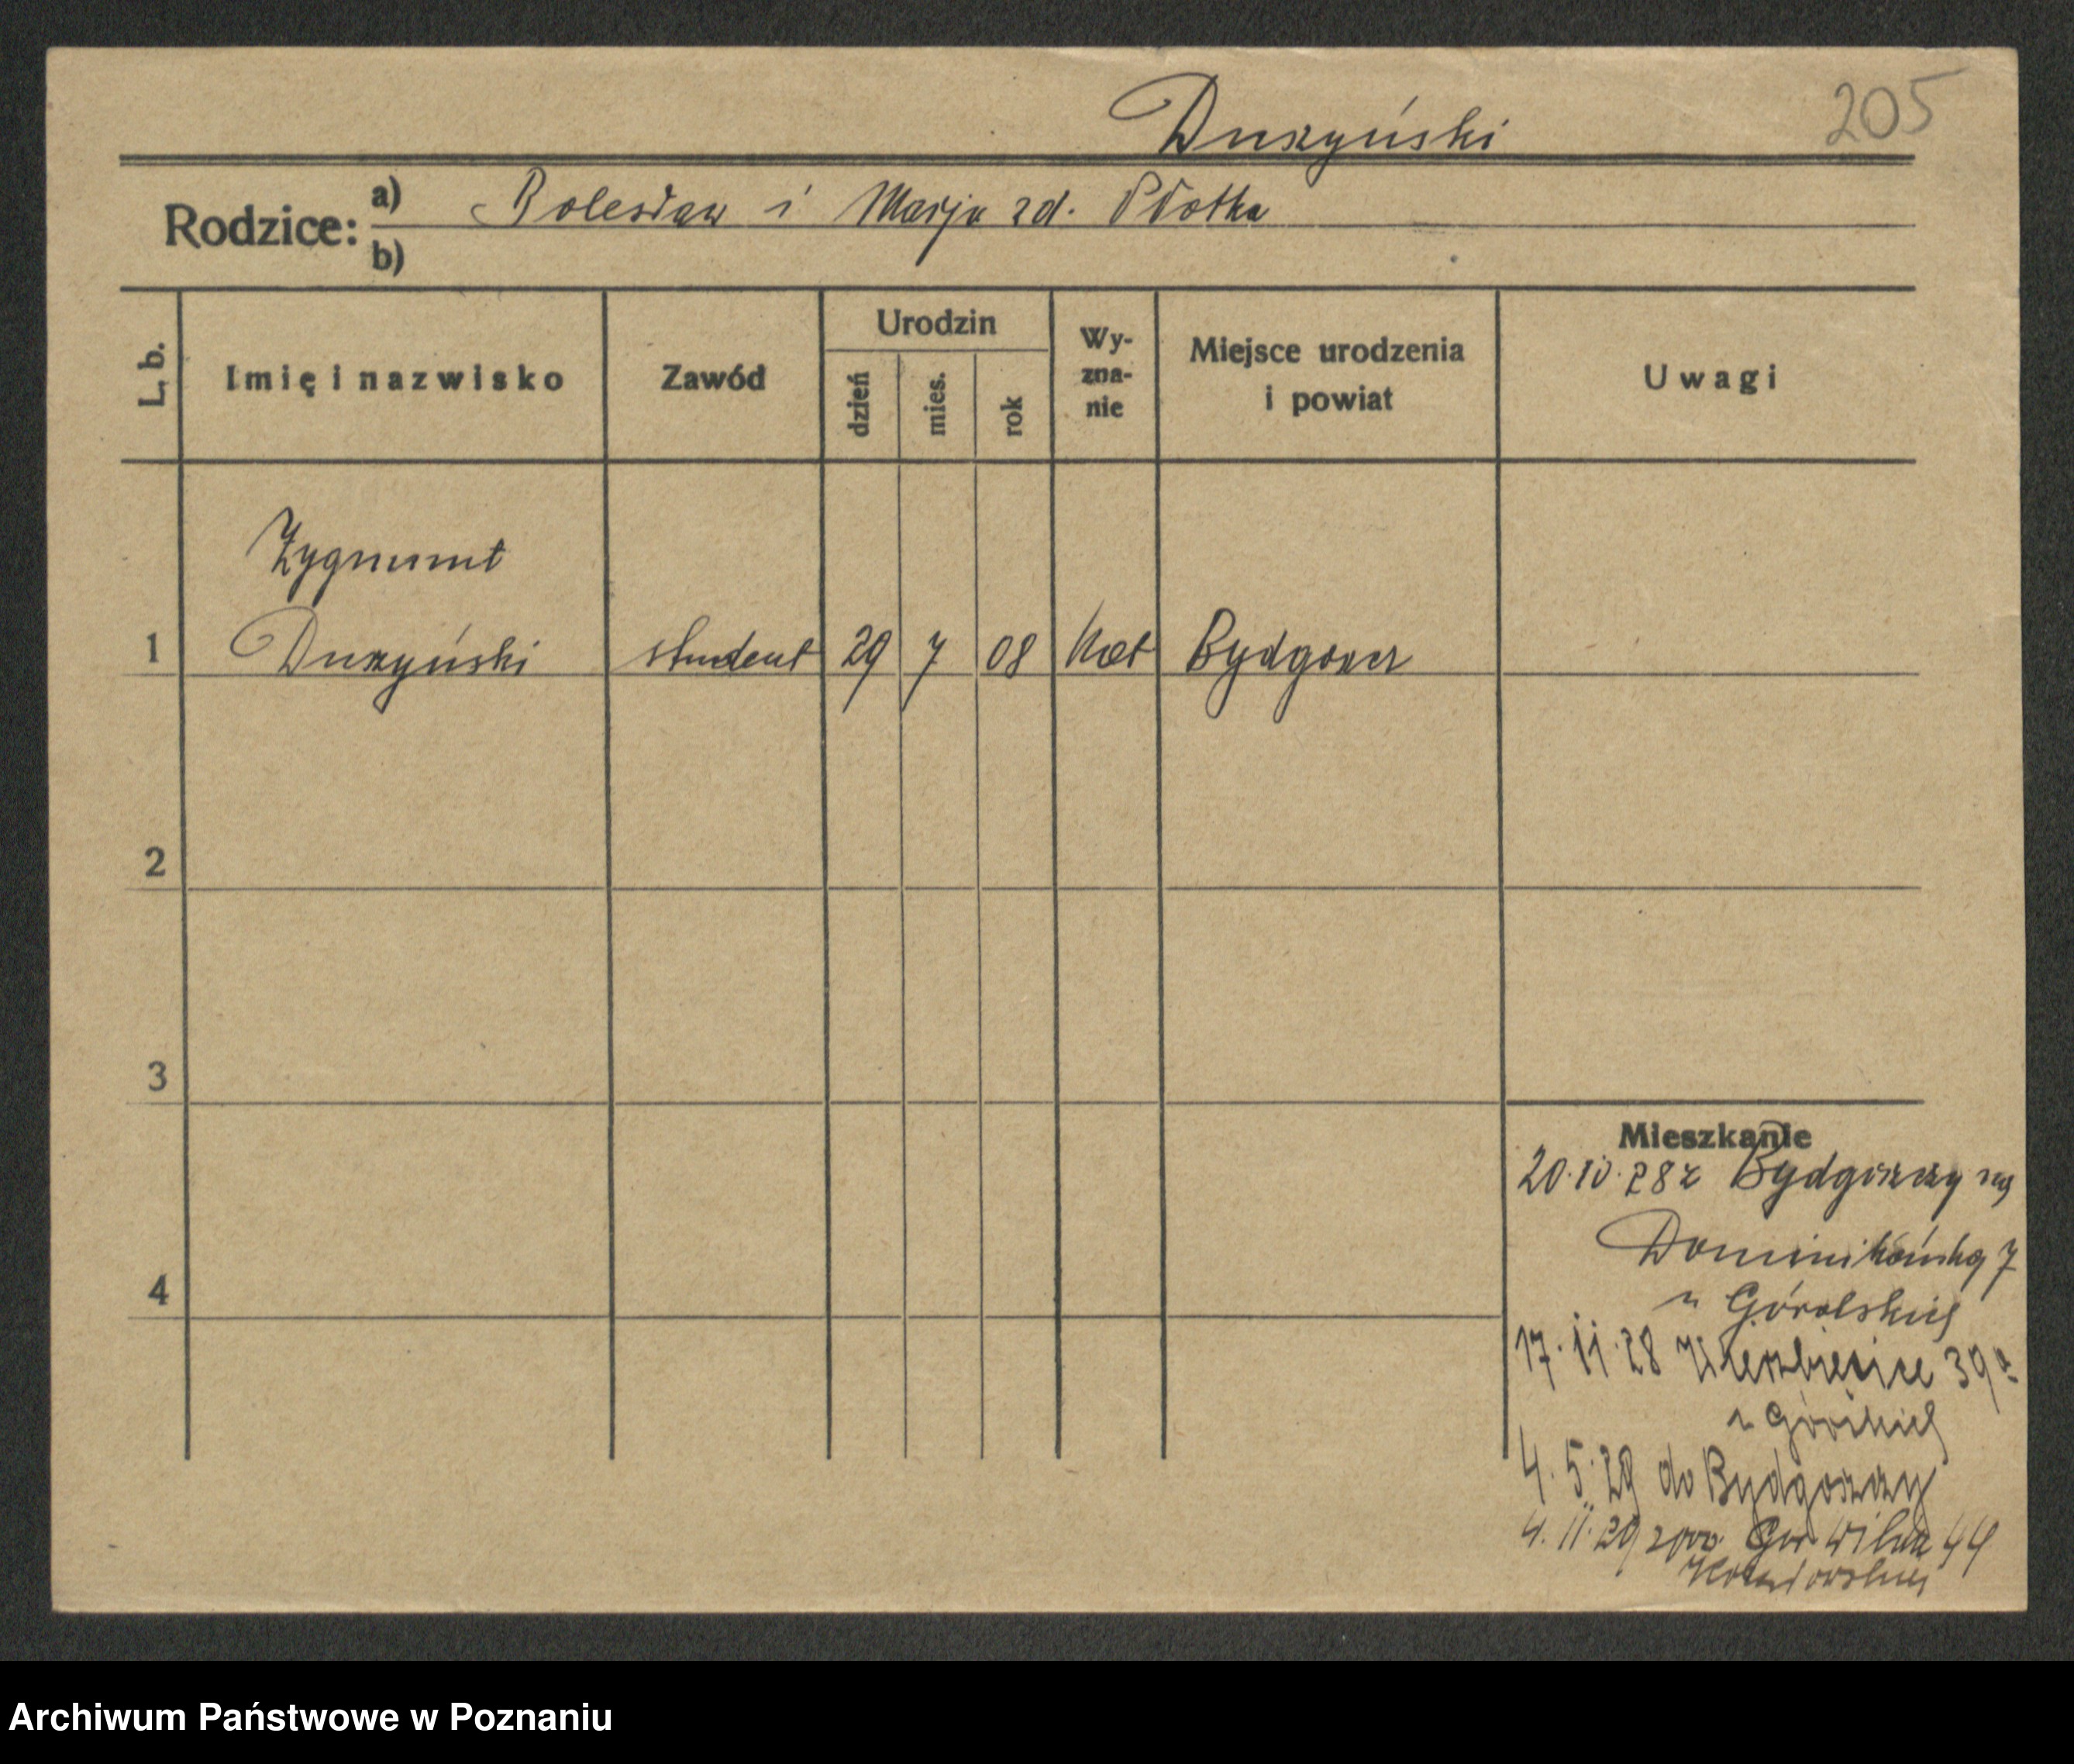 Duszyński
205
Rodzice: a) Bolesław i Marja zd. Płotka
b)
L. b.
Imię i nazwisko
Zawód
Urodzin
dzień
mies.
rok
Wy-
zna-
nie
Miejsce urodzenia
i powiat
Uwagi
Zygmunt
1 Duszyński student 29 7 08 kat Bydgoszcz
2
3
4
Mieszkanie
20.10.28 z Bydgoszczy na
Dominikańską 7
u Góralskiej
17.11.28 Wierzbięcice 39a
u Górskiej
4.5.29 do Bydgoszczy
4.11.29 Gór Wilda 44
Archiwum Państwowe w Poznaniu